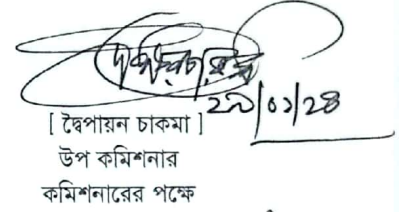 ২৯/০১/২৪
[ দ্বৈপায়ন চাকমা ]
উপ কমিশনার
কমিশনারের পক্ষে